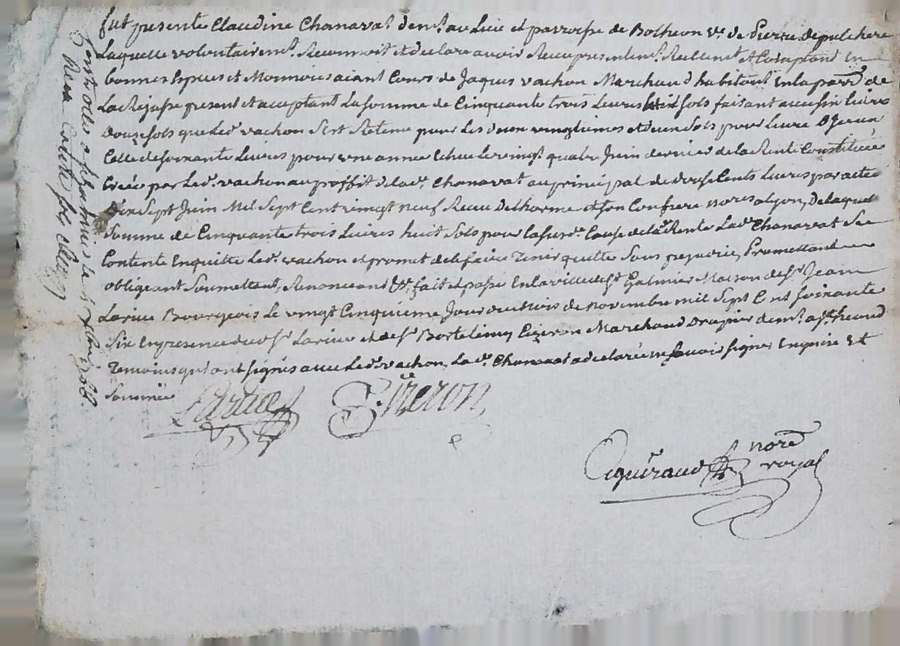 fut presente Claudine Chanavat demt au Lieu et parroisse de Bothéon ve de Pierre
Laquelle volontairemt Reconnoit et declare avoir Reçu presentemt Reellemt et Comptant En
bonnes Especes et Monnoies aiant Cours de Jaques vachon Marchand habitant En la parrse de
present et acceptant La somme de Cinquante trois Livres huit sols faisant avec six Livres
Douze sols que Led. vachon s'est Retenu pour Les deux vingtiemes et deux sols pour Livre
Celle de soixante Livres pour une année Echue Le vingt quatre Juin dernier de la Rente Constituée
Créée par Led. vachon au proffit de Lad. Chanavat au principal de douze Cents Livres par acte
Dix sept Juin Mil sept Cent vingt neuf Reçu Delhorme et son Confrere nores a Lyon, de laquelle
somme de Cinquante trois Livres huit sols pour La susde Cause de lad. Rente Lad. Chanavat se
Contente En quitte Led. vachon et promet de Le faire Tenir quitte sous peyne, Promettant
obligeant Soumettant, Renonceant &a fait et passé En la ville de St Galmier Maison de Sr Jean
Larive Bourgeois Le vingt Cinquieme Jour du Mois de Novembre mil sept Cent soixante
six En presence dud. Sr Larive et de Sr Bartelemy Marchand Drapier demt
Temoins qui ont signés avec Led. vachon, Lad. Chanavat a declaré ne sçavoir signer Enquise Et
sommée
Larive
nore
royal
Controllé a St Galmier le
Reçu